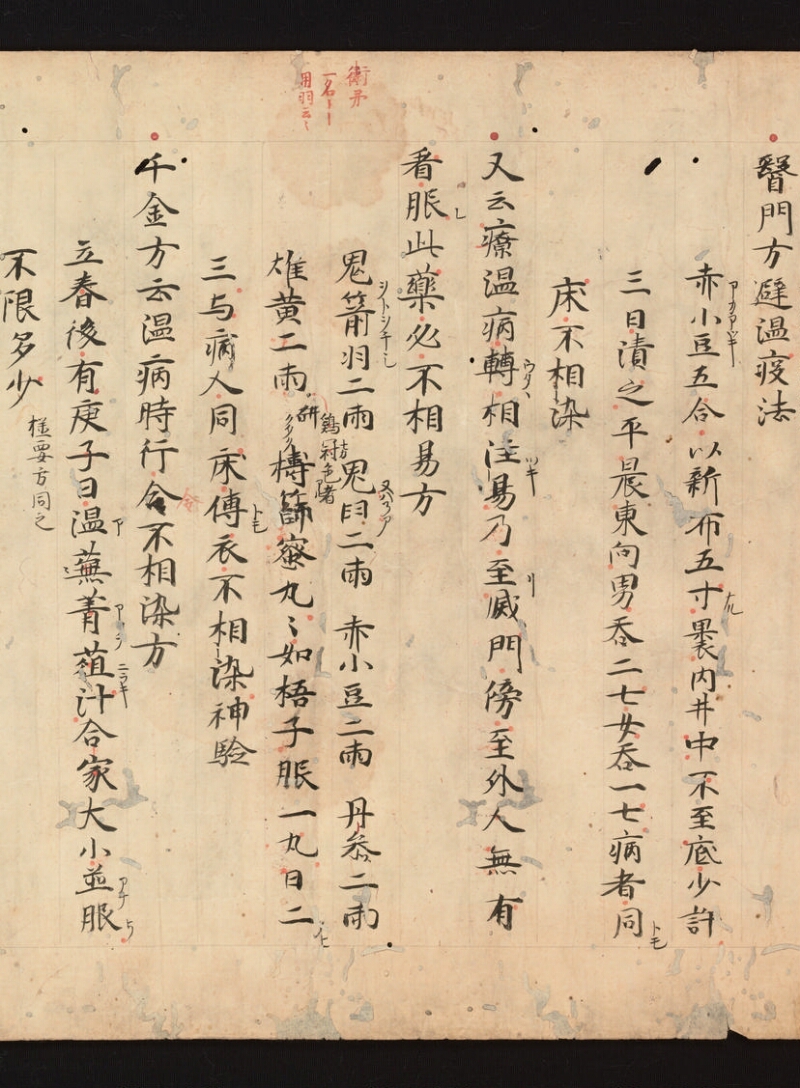 醫門方避温疫法
赤小豆五合以新布五寸裹内井中不至底少許
三日漬之平晨東向男吞二七女吞一七病者同
床不相染
又云療温病轉相注易乃至滅門傍至外人無有
看服此藥必不相易方
鬼箭羽二兩鬼臼二兩 赤小豆二兩 丹參二兩
雄黄二兩 研 鷄冠色者 擣篩蜜丸〻如梧子服一丸日二
三与病人同床傳衣不相染神驗
千金方云温病時行令不相染方
立春後有庚子日温蕪菁葅汁合家大小並服
不限多少 極要方同之
衛矛
一名
用羽云〻